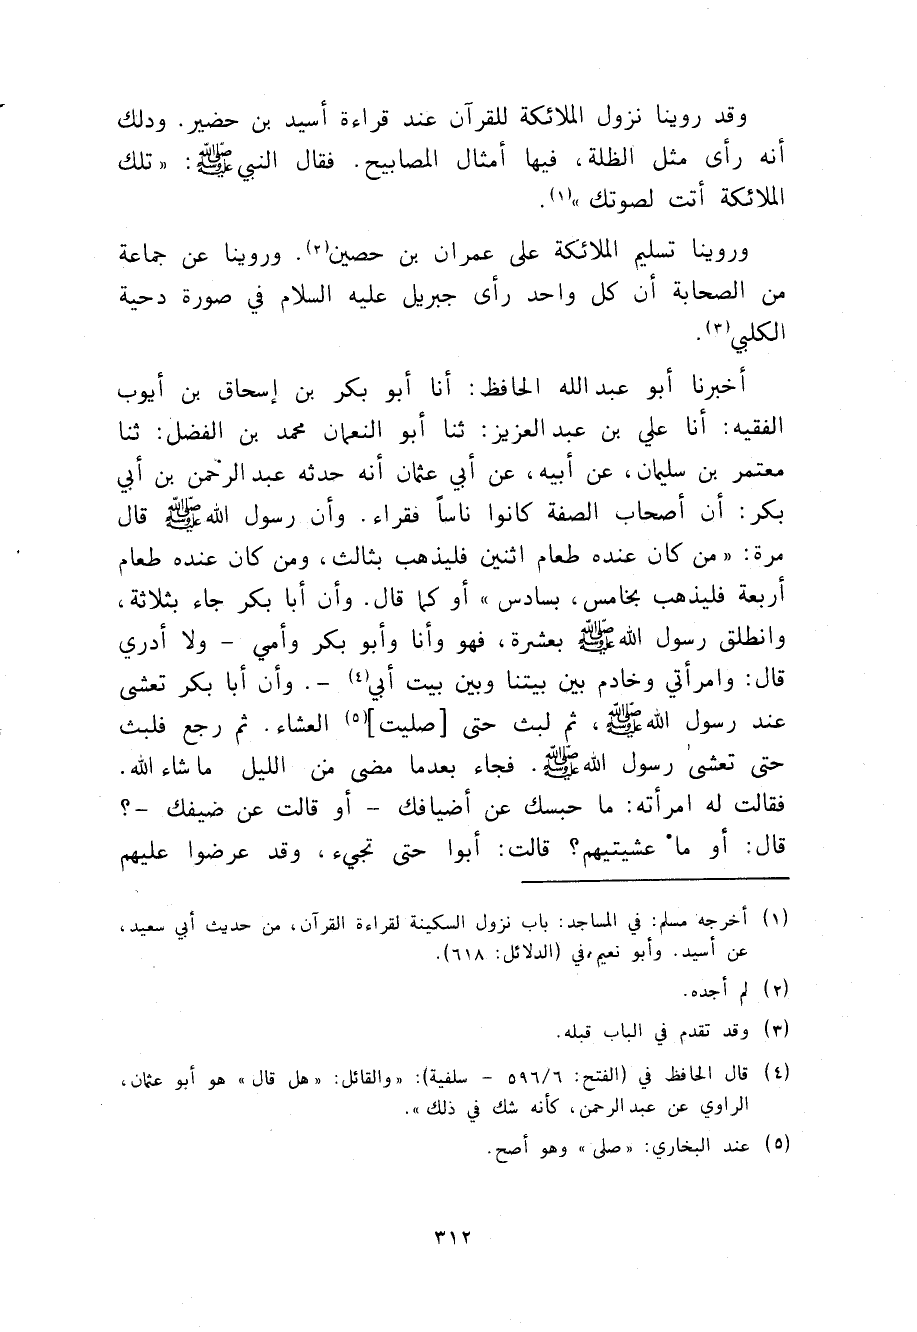 وقد روينا نزول الملائكة للقرآن عند قراءة أسيد بن حضير. ودلك
أنه رأى مثل الظلة، فيها أمثال المصابيح. فقال النبي ﷺ: «تلك
الملائكة أتت لصوتك»(١).
وروينا تسليم الملائكة على عمران بن حصين(٢). وروينا عن جماعة
من الصحابة أن كل واحد رأى جبريل عليه السلام في صورة دحية
الكلبي(٣).
أخبرنا أبو عبد الله الحافظ: أنا أبو بكر بن إسحاق بن أيوب
الفقيه: أنا علي بن عبد العزيز: ثنا أبو النعمان محمد بن الفضل: ثنا
معتمر بن سليمان، عن أبيه، عن أبي عثمان أنه حدثه عبد الرحمن بن أبي
بكر: أن أصحاب الصفة كانوا ناساً فقراء. وأن رسول الله ﷺ قال
مرة: «من كان عنده طعام اثنين فليذهب بثالث، ومن كان عنده طعام
أربعة فليذهب بخامس، بسادس» أو كما قال. وأن أبا بكر جاء بثلاثة،
وانطلق رسول الله ﷺ بعشرة، فهو وأنا وأبو بكر وأمي - ولا أدري
قال: وامرأتي وخادم بين بيتنا وبين بيت أبي(٤) -. وأن أبا بكر تعشى
عند رسول الله ﷺ، ثم لبث حتى [صليت](٥) العشاء. ثم رجع فلبث
حتى تعشى رسول الله ﷺ. فجاء بعدما مضى من الليل ما شاء الله.
فقالت له امرأته: ما حبسك عن أضيافك - أو قالت عن ضيفك -؟
قال: أو ما عشيتيهم؟ قالت: أبوا حتى تجيء، وقد عرضوا عليهم
(١) أخرجه مسلم: في المساجد: باب نزول السكينة لقراءة القرآن، من حديث أبي سعيد،
عن أسيد. وأبو نعيم، في (الدلائل: ٦١٨).
(٢) لم أجده.
(٣) وقد تقدم في الباب قبله.
(٤) قال الحافظ في (الفتح: ٥٩٦/٦ - سلفية): «والقائل: «هل قال» هو أبو عثمان،
الراوي عن عبد الرحمن، كأنه شك في ذلك».
(٥) عند البخاري: «صلى» وهو أصح.
٣١٢